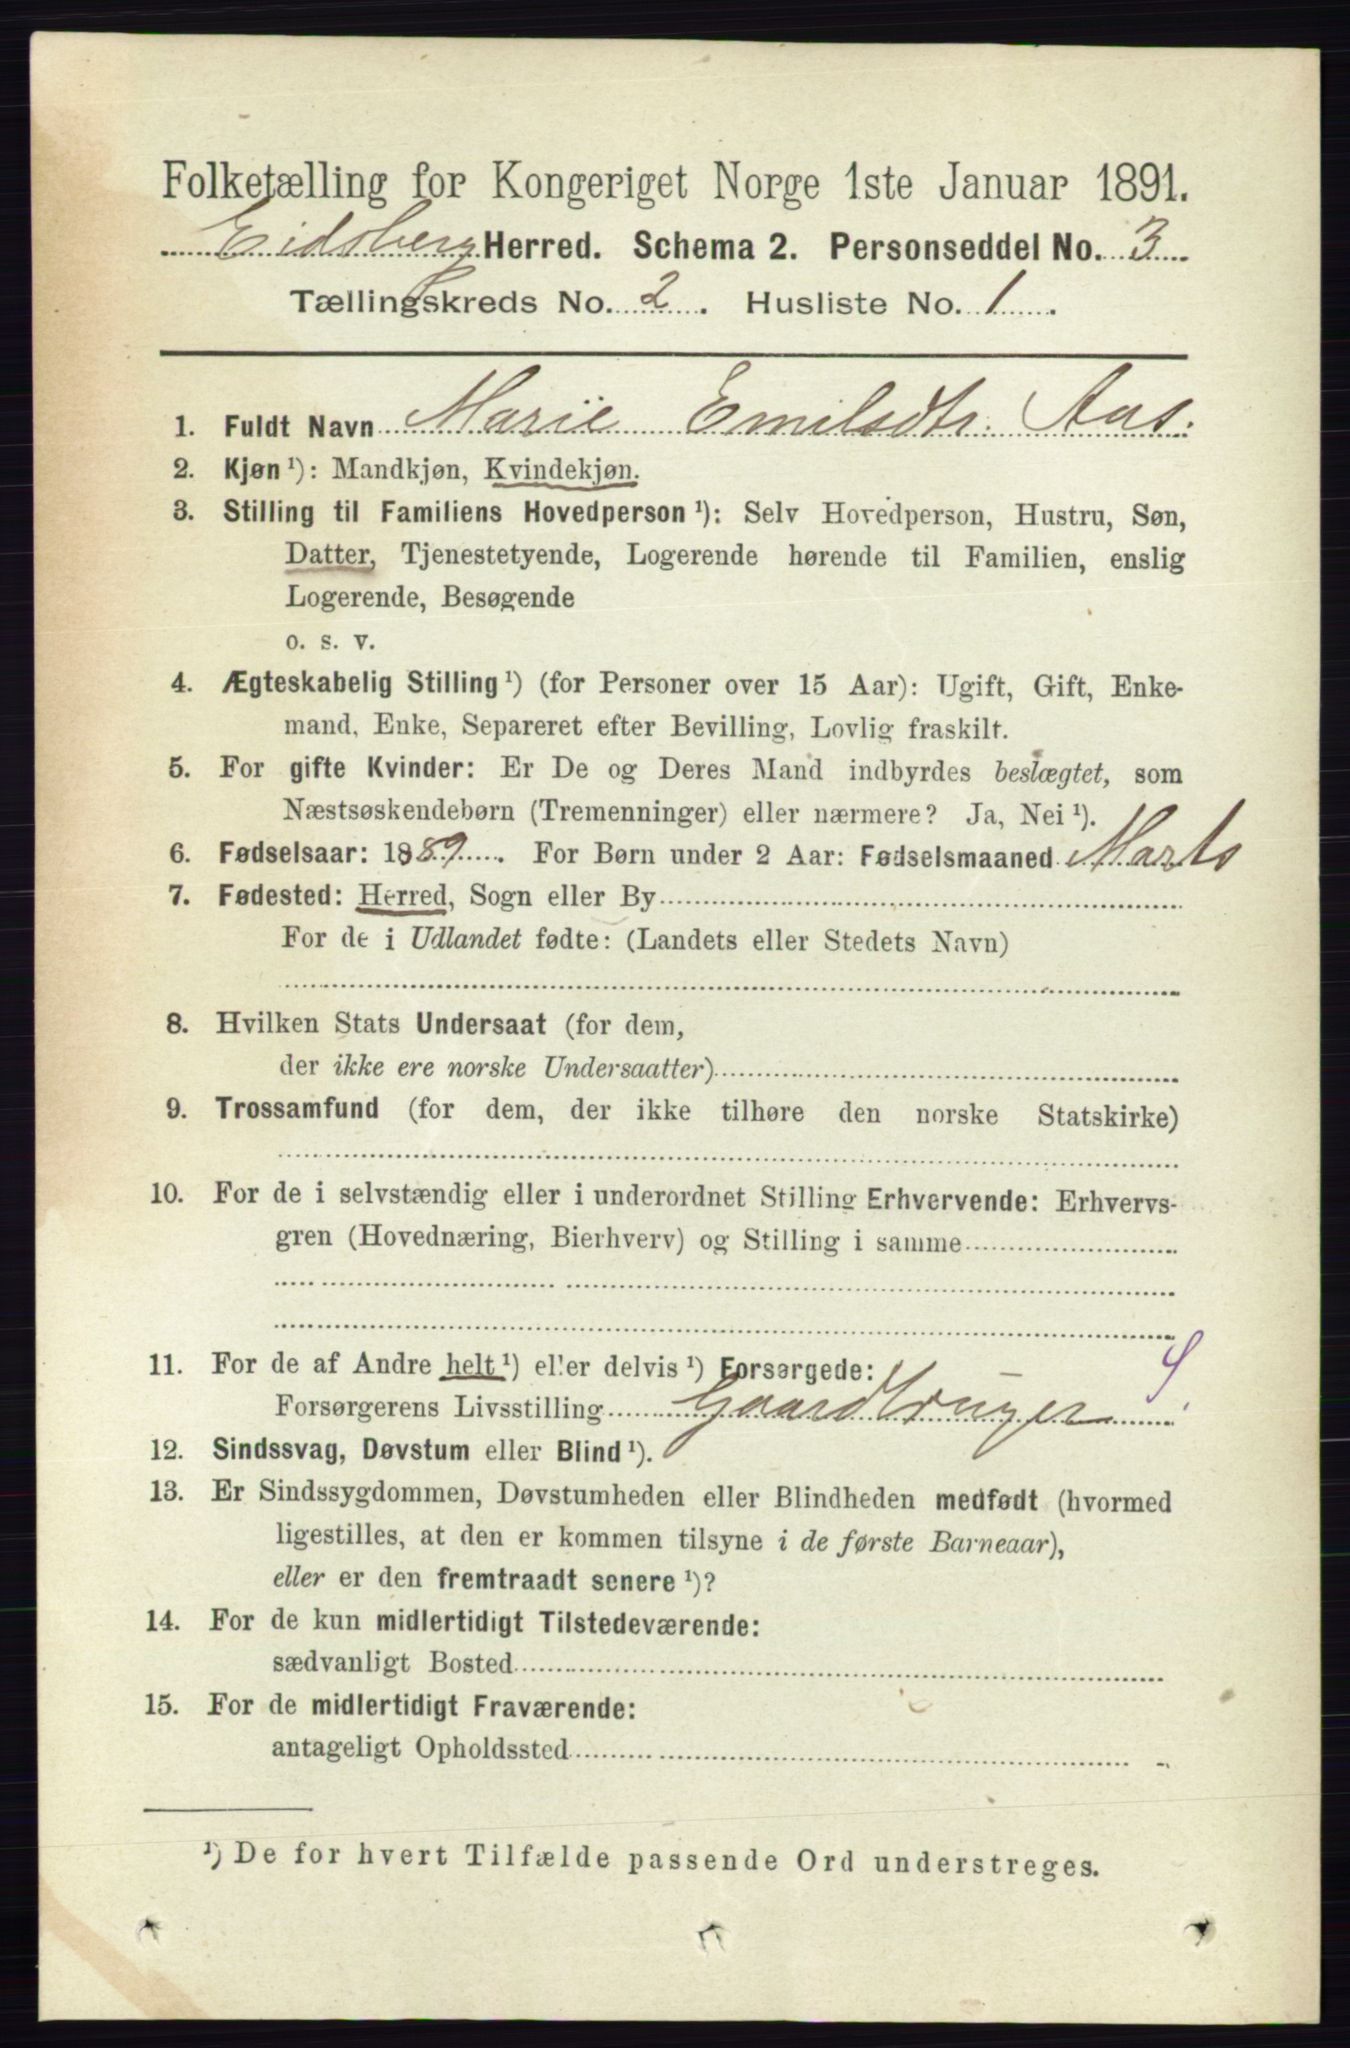 Folketælling for Kongeriget Norge 1ste Januar 1891.
Eidsberg Herred. Schema 2. Personseddel No. 3
Tællingskreds No. 2. Husliste No. 1.
1. Fuldt Navn Marie Emilsdtr. Aas.
2. Kjøn ¹): Mandkjøn, Kvindekjøn.
3. Stilling til Familiens Hovedperson ¹): Selv Hovedperson, Hustru, Søn,
Datter, Tjenestetyende, Logerende hørende til Familien, enslig
Logerende, Besøgende
o. s. v.
4. Ægteskabelig Stilling ¹) (for Personer over 15 Aar): Ugift, Gift, Enke-
mand, Enke, Separeret efter Bevilling, Lovlig fraskilt.
5. For gifte Kvinder: Er De og Deres Mand indbyrdes beslægtet, som
Næstsøskendebørn (Tremenninger) eller nærmere? Ja, Nei ¹).
6. Fødselsaar: 1889. For Børn under 2 Aar: Fødselsmaaned Marts
7. Fødested: Herred, Sogn eller By
For de i Udlandet fødte: (Landets eller Stedets Navn)
8. Hvilken Stats Undersaat (for dem,
der ikke ere norske Undersaatter)
9. Trossamfund (for dem, der ikke tilhøre den norske Statskirke)
10. For de i selvstændig eller i underordnet Stilling Erhvervende: Erhvervs-
gren (Hovednæring, Bierhverv) og Stilling i samme
11. For de af Andre helt ¹) eller delvis ¹) Forsørgede:
Forsørgerens Livsstilling Gaardbruger
12. Sindssvag, Døvstum eller Blind ¹).
13. Er Sindssygdommen, Døvstumheden eller Blindheden medfødt (hvormed
ligestilles, at den er kommen tilsyne i de første Barneaar),
eller er den fremtraadt senere ¹)?
14. For de kun midlertidigt Tilstedeværende:
sædvanligt Bosted
15. For de midlertidigt Fraværende:
antageligt Opholdssted
¹) De for hvert Tilfælde passende Ord understreges.